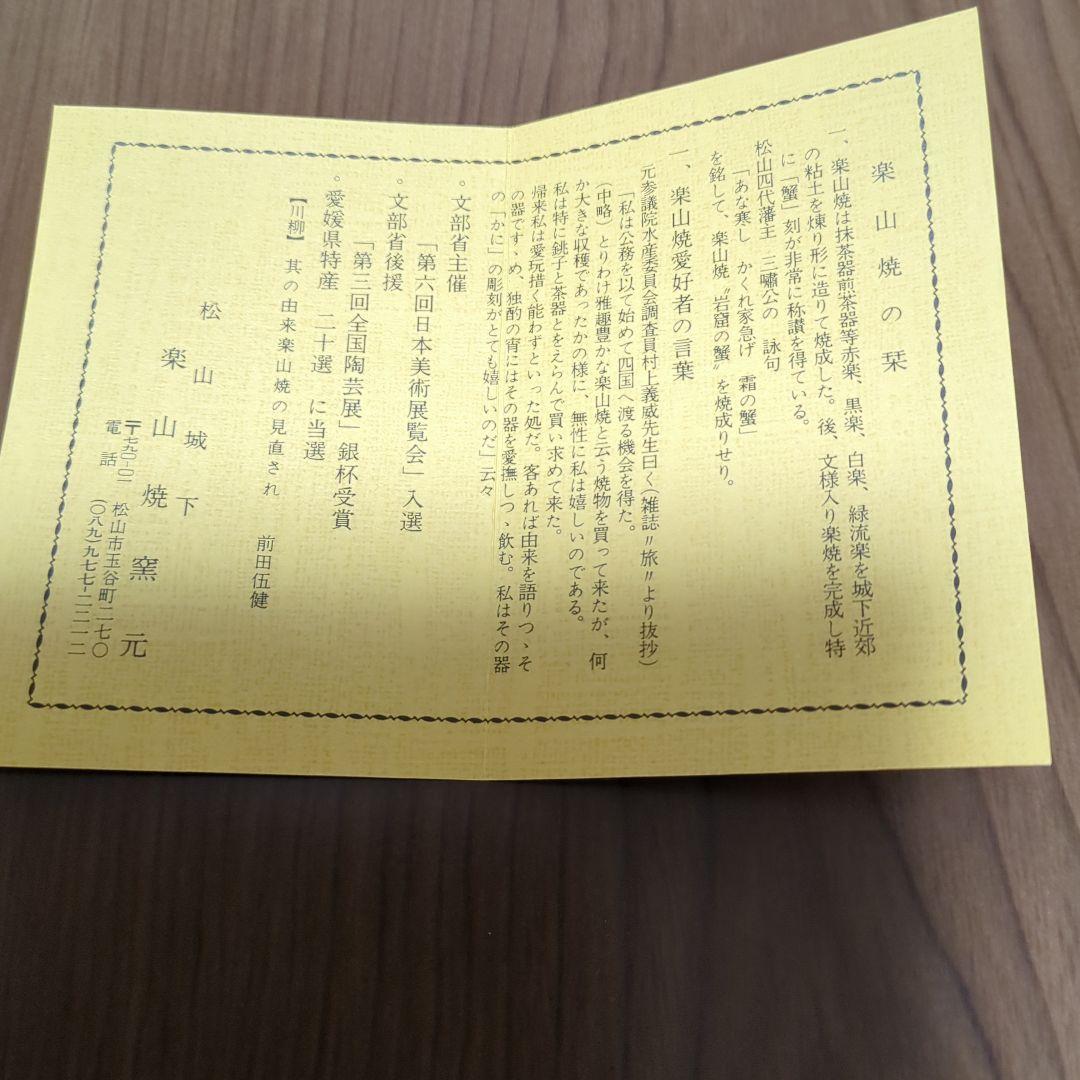 楽山焼の栞
一、楽山焼は抹茶器煎茶器等赤楽、黒楽、白楽、緑流楽を城下近郊
の粘土を煉り形に造りて焼成した。後、文様入り楽焼を完成し特
に「蟹」刻が非常に称讃を得ている。
松山四代藩主 三嘯公の 詠句
「あな寒し かくれ家急げ 霜の蟹」
を銘して、楽山焼〝岩窟の蟹〟を焼成りせり。
一、楽山焼愛好者の言葉
元参議院水産委員会調査員村上義威先生曰く(雑誌〝旅〟より抜抄)
「私は公務を以て始めて四国へ渡る機会を得た。
(中略)とりわけ雅趣豊かな楽山焼と云う焼物を買って来たが、何
か大きな収穫であったかの様に、無性に私は嬉しいのである。
私は特に銚子と茶器とをえらんで買い求めて来た。
帰来私は愛玩措く能わずといった処だ。客あれば由来を語りつゝそ
の器ですゝめ、独酌の宵にはその器を愛撫しつゝ飲む。私はその器
の「かに」の彫刻がとても嬉しいのだ」云々
。文部省主催
「第六回日本美術展覧会」入選
。文部省後援
「第三回全国陶芸展」銀杯受賞
。愛媛県特産 二十選 に当選
【川柳】 其の由来楽山焼の見直され
前田伍健
松山城下
楽山焼窯元
〒七九一-〇一 松山市玉谷町二七〇
電話 (〇八九)九七七-二二一二